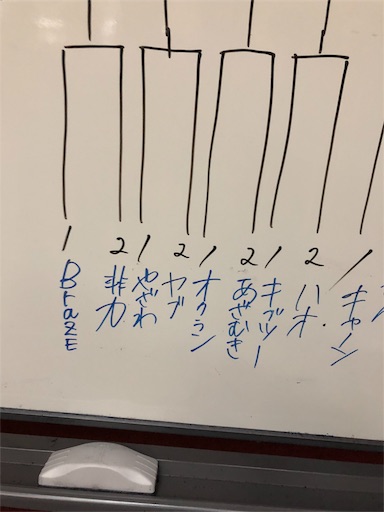 1 2 1 2 1 2 1 2 1
BrazE
非力
やざわ
ヤブ
オクラン
あざむき
キブツー
ハオ
キャーン